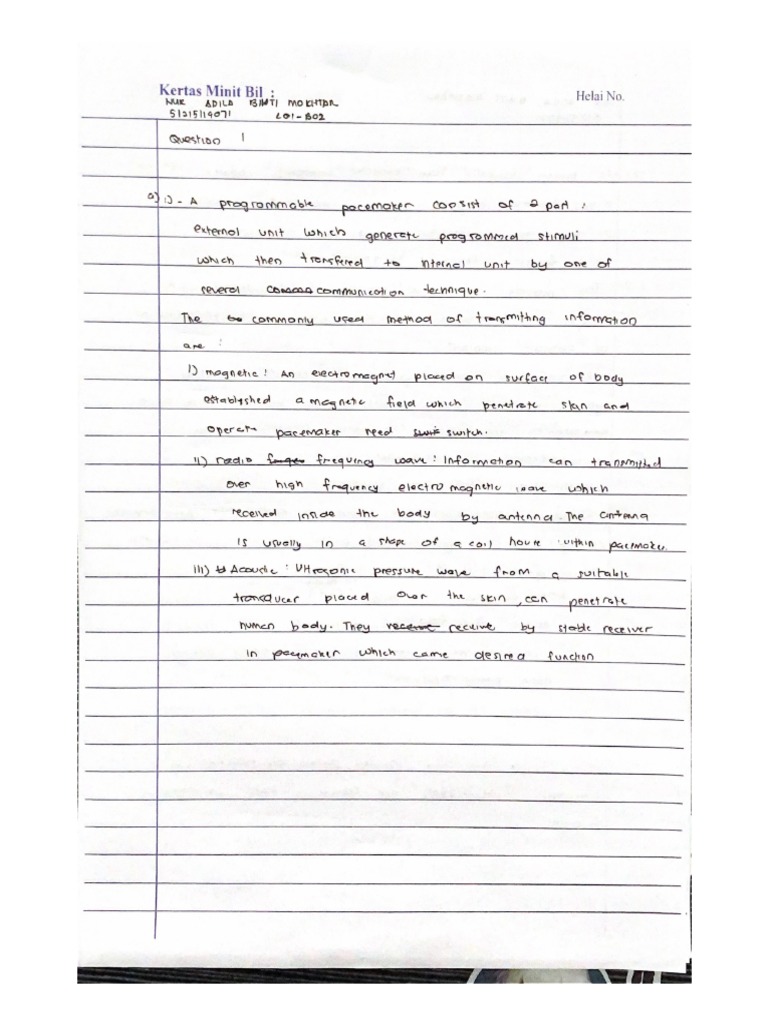 Kertas Minit Bil :
Helai No.
NUR ADILA BINTI MOKHTAR
51215119071 L01-B02
Question 1
a) i) - A programmable pacemaker consist of 2 part :
external unit which generate programmed stimuli
which then transfered to internal unit by one of
several communication technique.
The commonly used method of transmitting information
are :
i) magnetic : An electromagnet placed on surface of body
established a magnetic field which penetrate skin and
operate pacemaker reed switch.
ii) radio frequency wave : Information can transmitted
over high frequency electro magnetic wave which
received inside the body by antenna. The antenna
is usually in a shape of a coil house within pacemaker.
iii) Acoustic : Ultrasonic pressure wave from a suitable
tranducer placed over the skin, can penetrate
human body. They receive by stable receiver
in pacemaker which came desired function